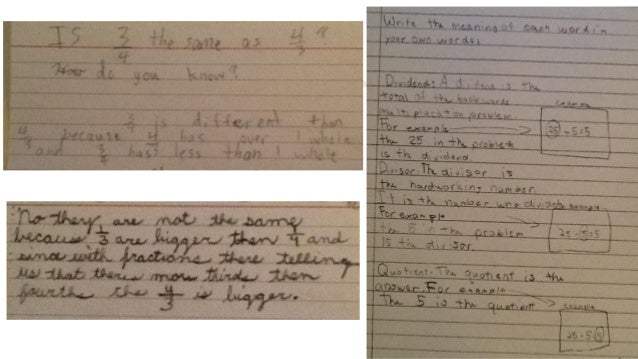 IS 3/4 the same as 4/3?
How do you know?
3/4 is different than
4/3 because 4/3 has over 1 whole
and 3/4 has less than 1 whole
No they are not the same
because 1/3 are bigger then 1/4 and
since with fractions there telling
us that theres more thirds then
fourths the 4/3 is bigger.
Write the meaning of each word in
your own words:
Dividend: A is the
total of the backwards
multiplacation problem.
For example
the 25 in the problem
is the dividend.
example
25÷5=5
Divisor: The divisor is
the hardworking number.
It is the number who divides
For example
the 5 in the problem
is the divisor.
example
25÷5=5
Quotient: The quotient is the
answer. For example
The 5 is the quotient
example
25÷5=5